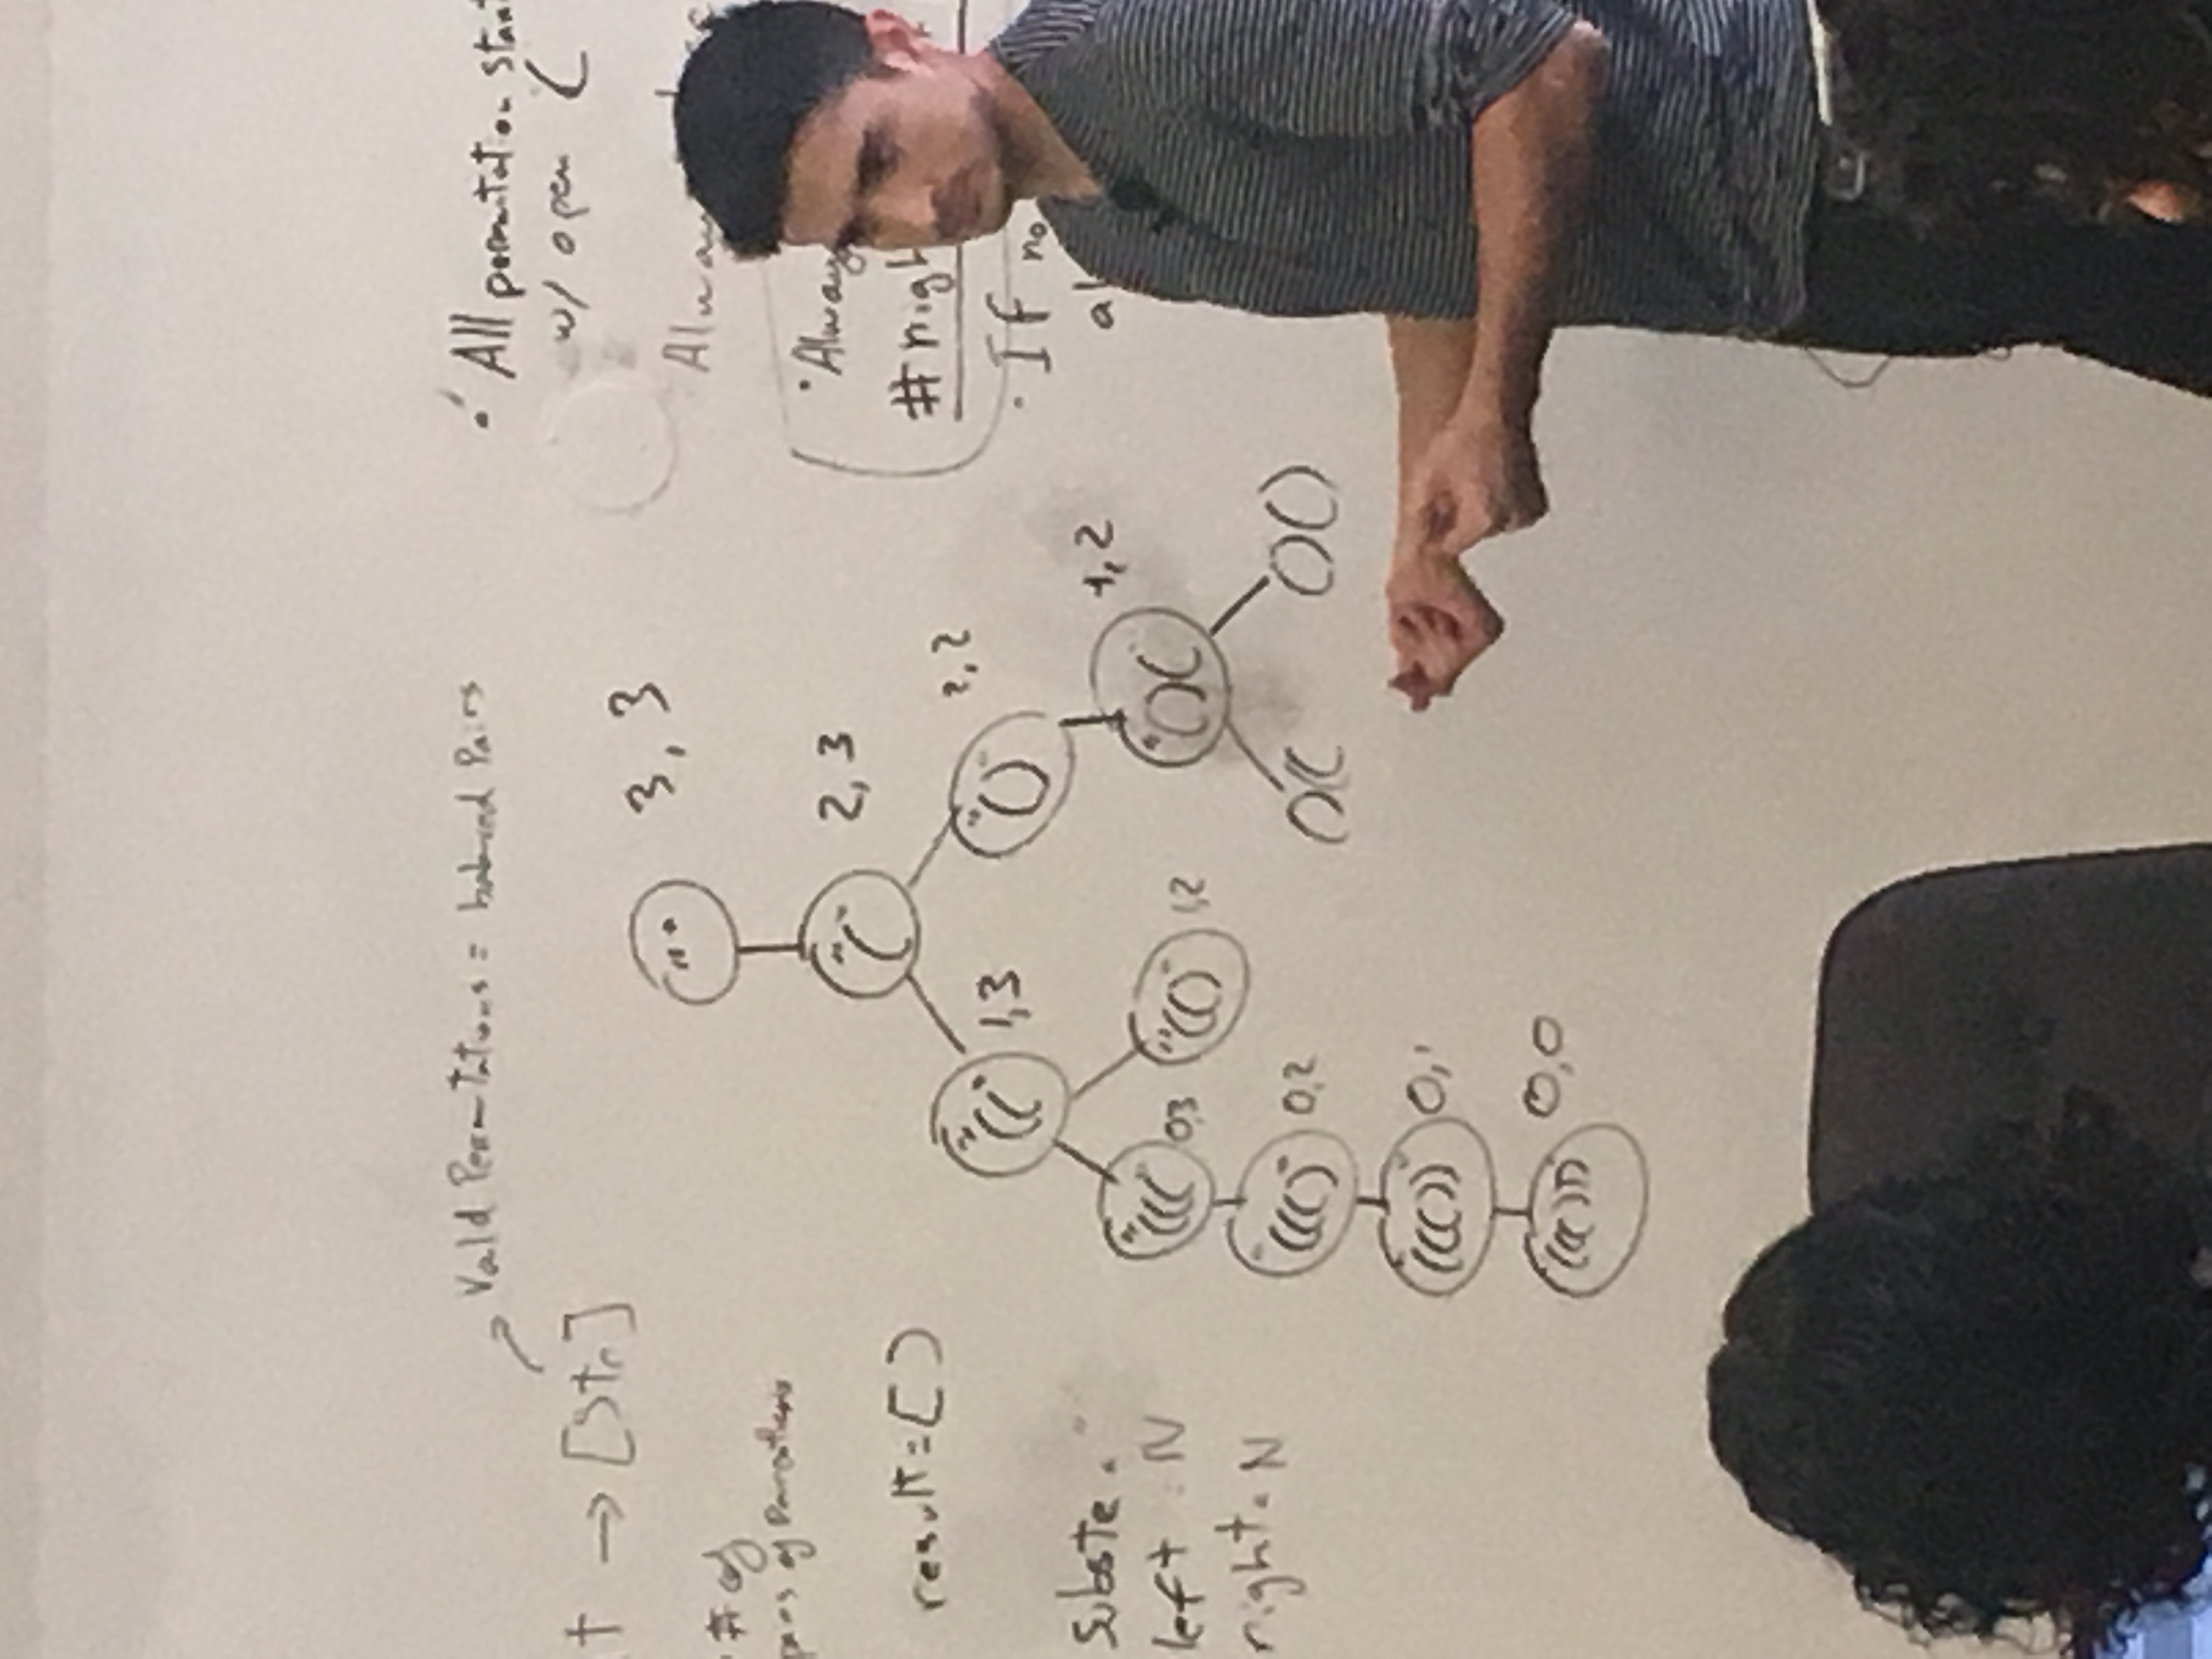 Valid Permutations = balanced Pairs
t → [Str]
# of
pairs of Parenthesis
result = [ ]
Substr = ""
left = N
right = N
"" 3, 3
"(" 2, 3
"((" 1,3
"()" 2,2
"(((" 0,3
"(()" 1,2
"()(" 1,2
"((()" 0,2
()((
()()
"((())" 0,1
"((()))" 0,0
• All permutation start
w/ open (
Alway
• Always
# righ
• If no
al